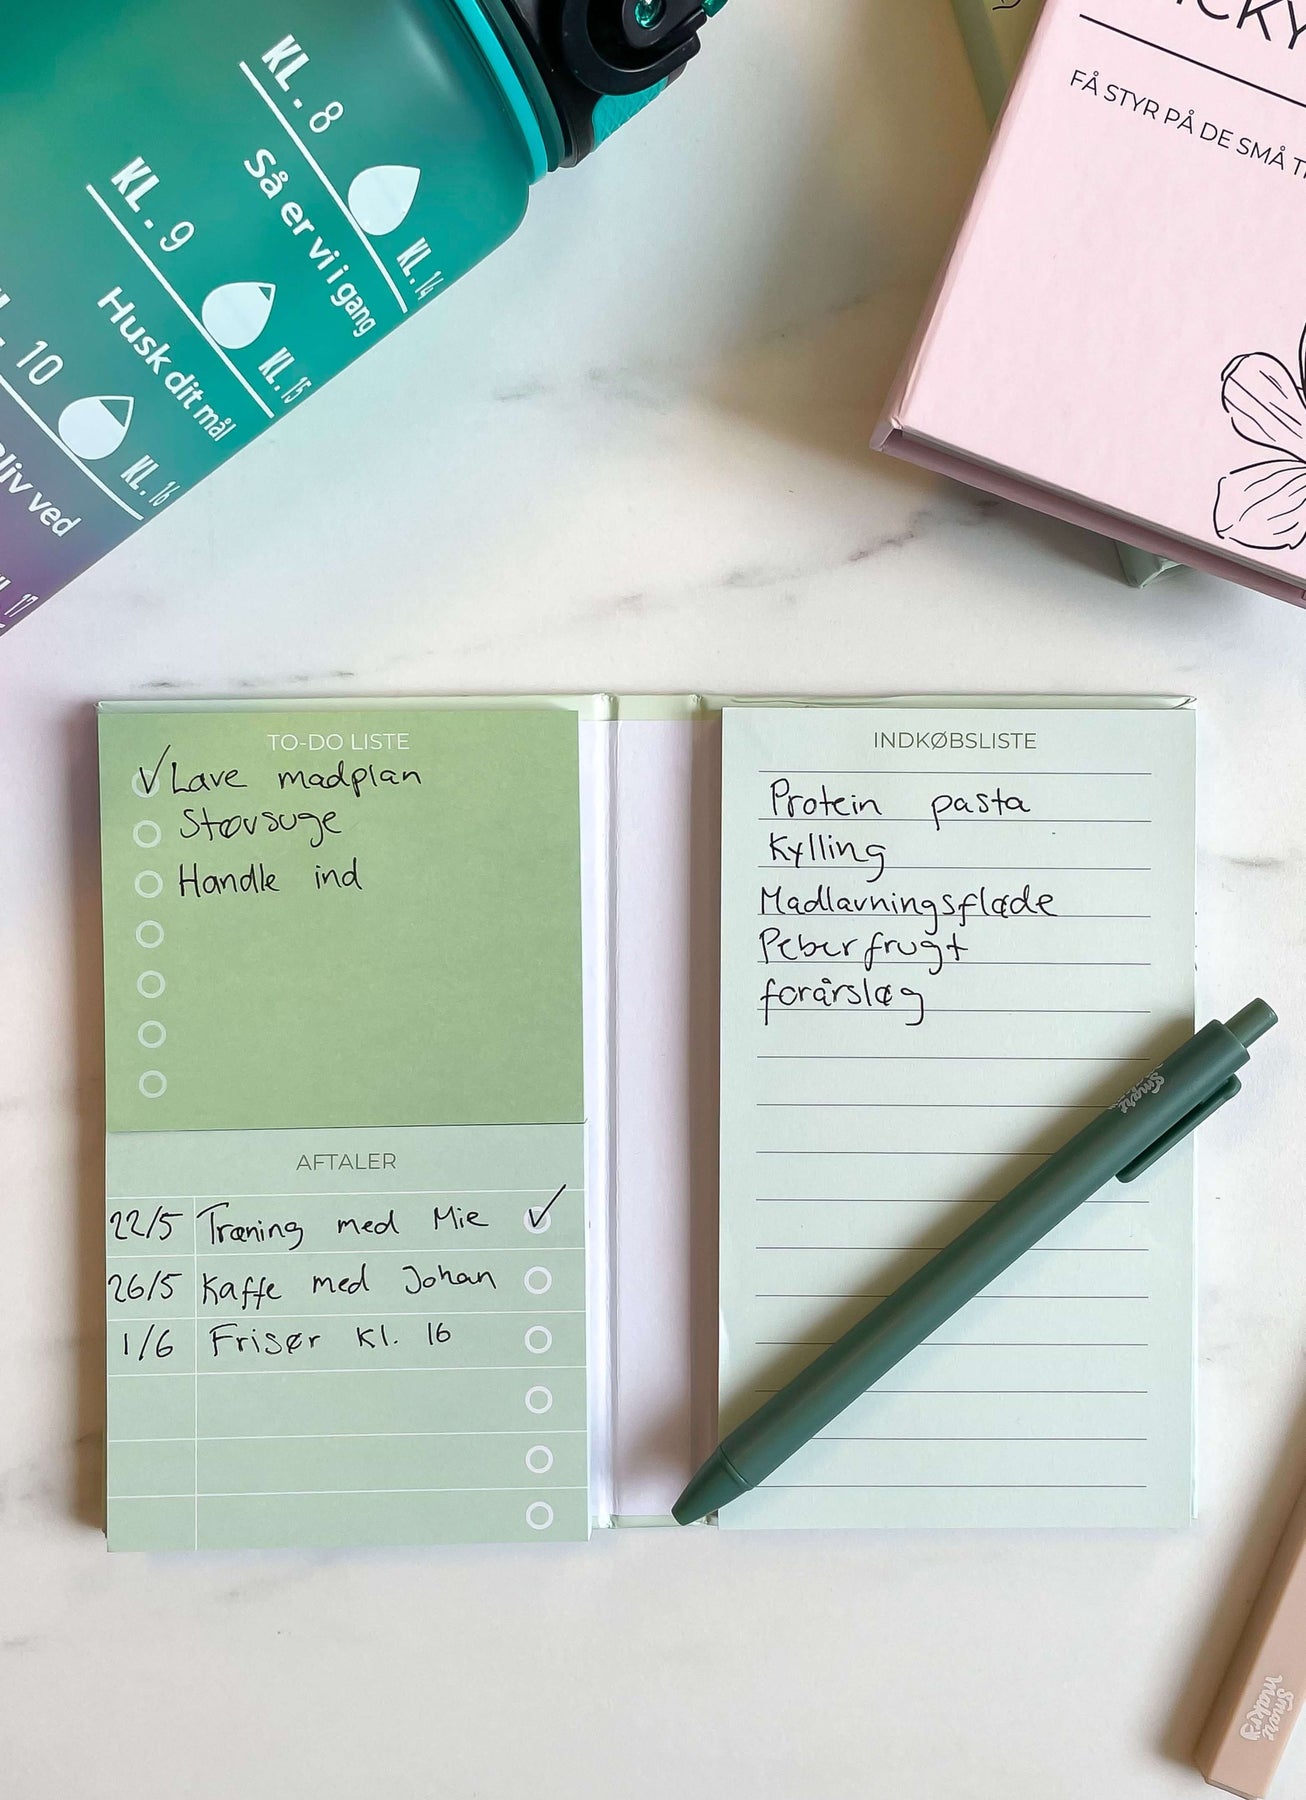 KL. 8
Så er vi i gang
KL. 14
KL. 9
Husk dit mål
KL. 15
10
KL. 16
ved
17
FÅ STYR PÅ DE SMÅ
TO-DO LISTE
Lave madplan
Støvsuge
Handle ind
AFTALER
22/5 Træning med Mie
26/5 Kaffe med Johan
1/6 Frisør kl. 16
INDKØBSLISTE
Protein pasta
Kylling
Madlavningsfløde
Peberfrugt
forårsløg
Smart
Smart
Makry